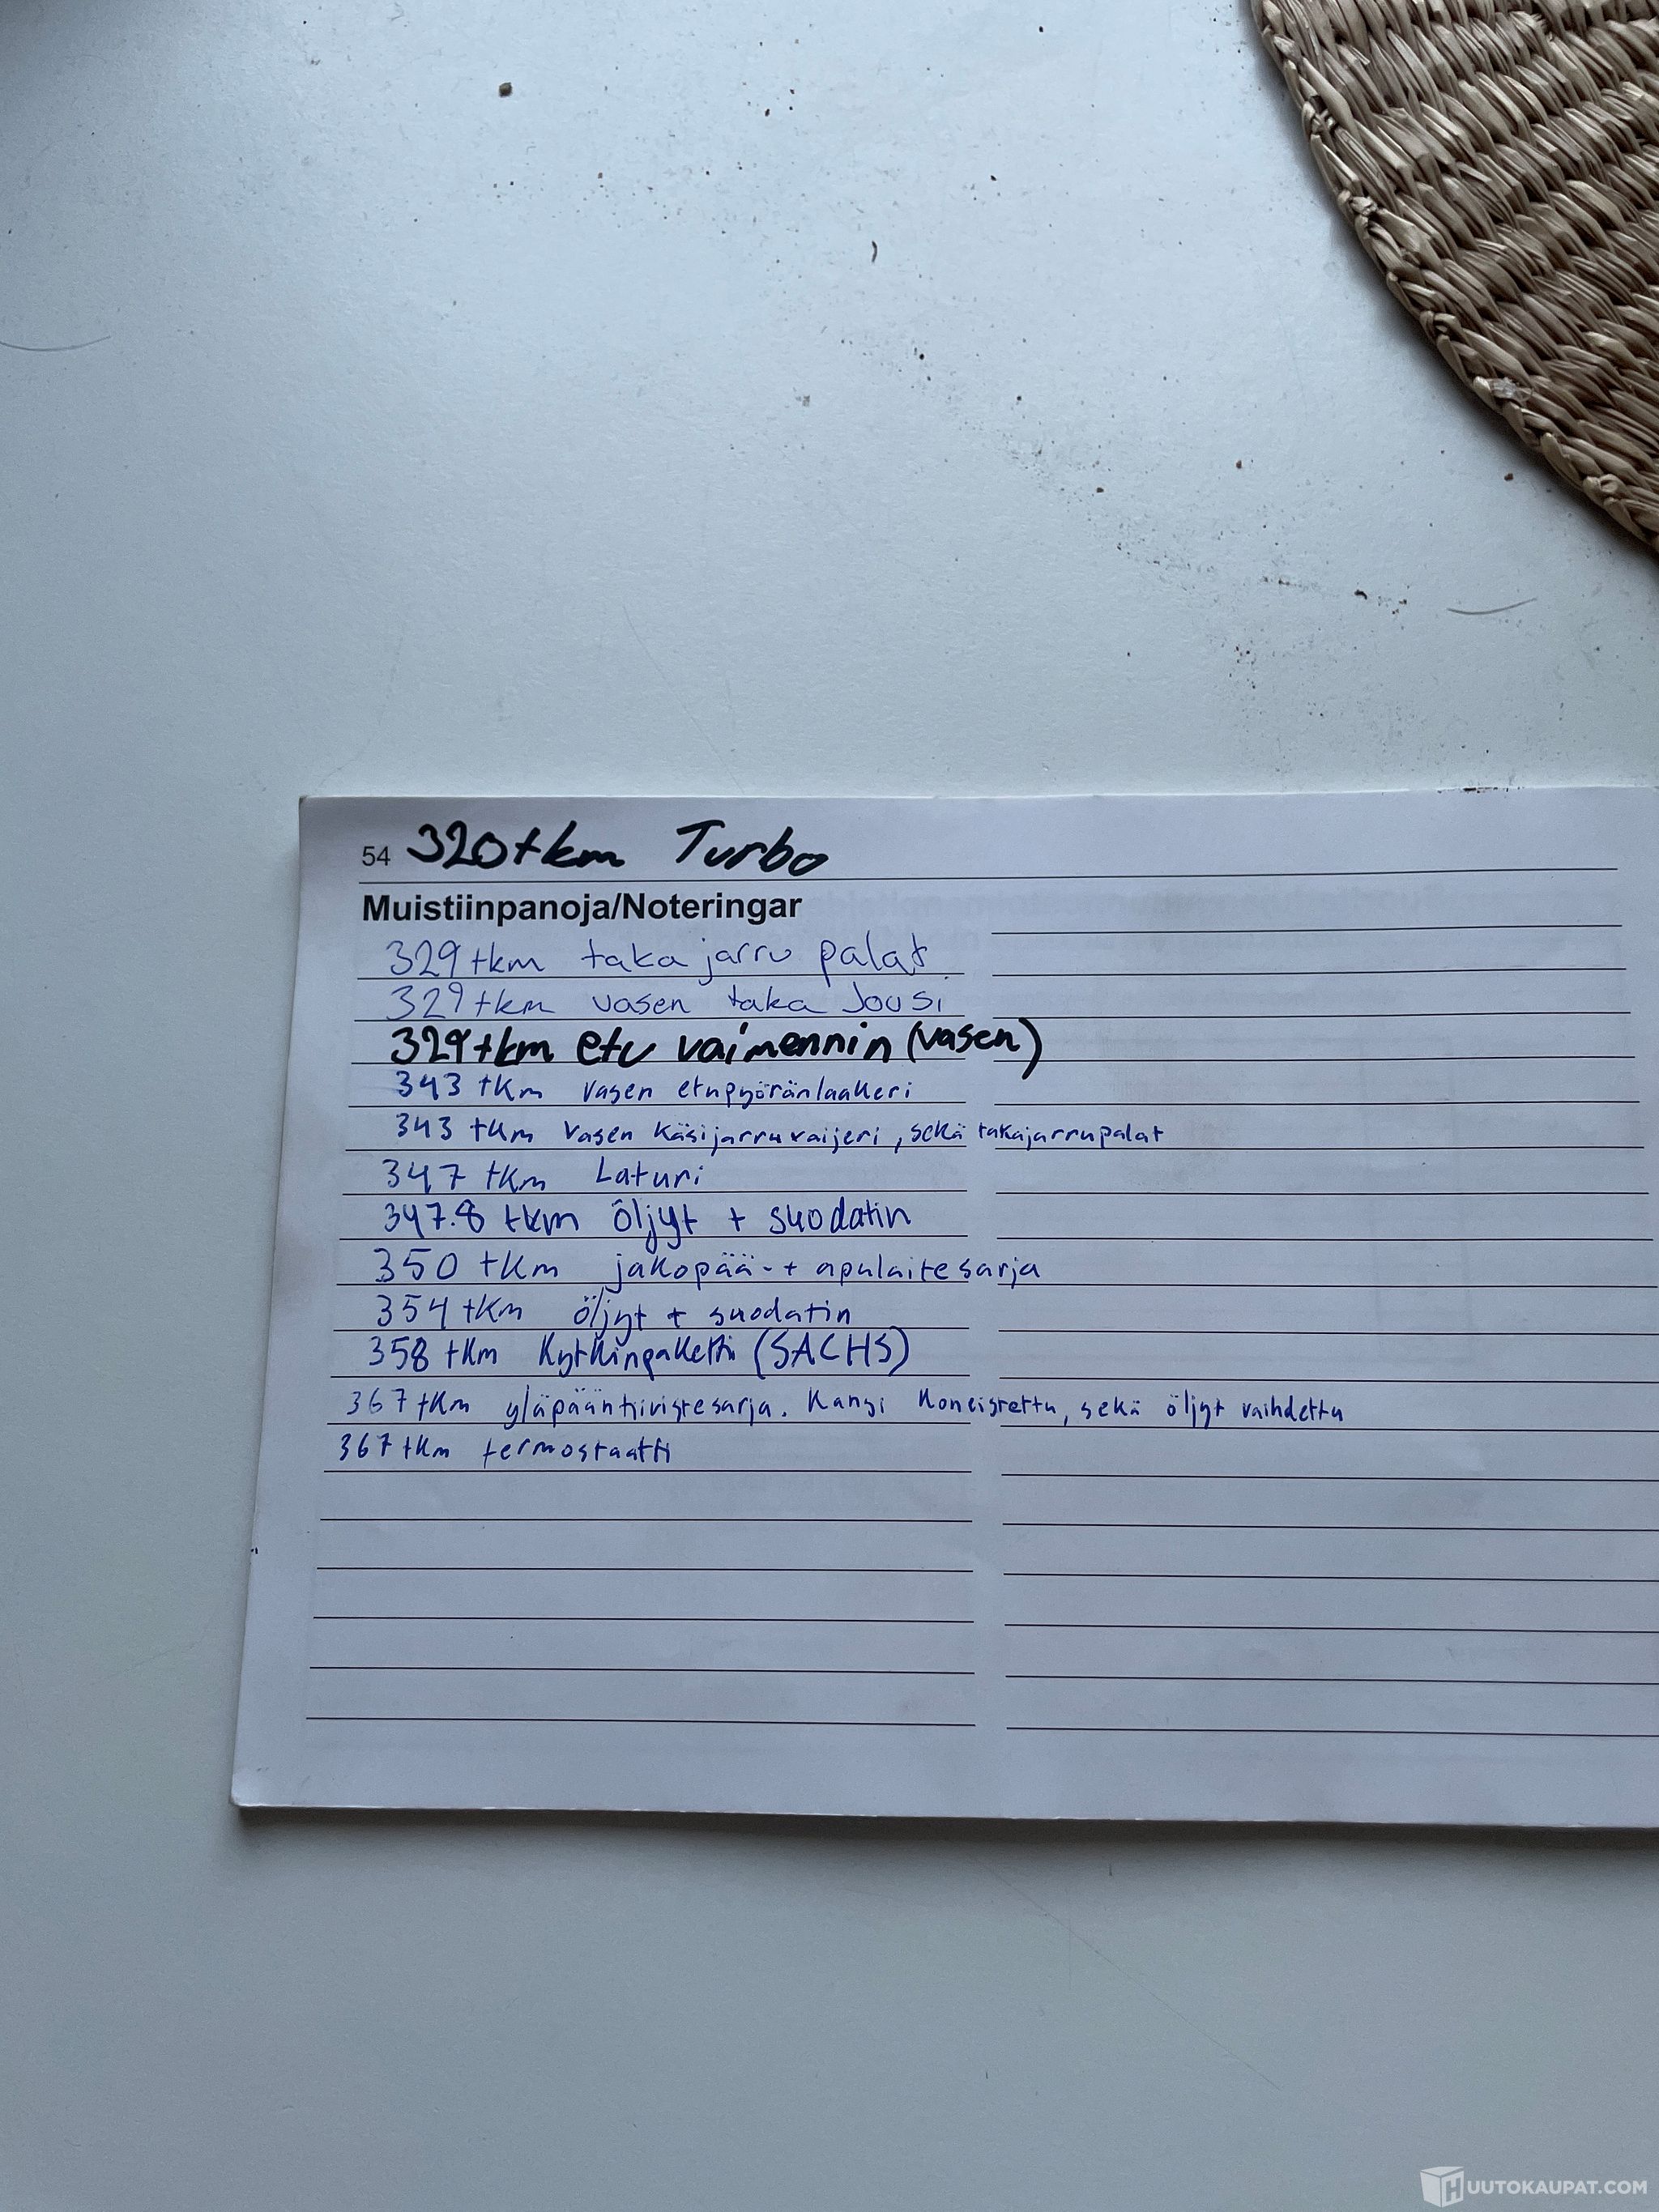 54 320tkm Turbo
Muistiinpanoja/Noteringar
329tkm taka jarru palat
329tkm vasen taka Jousi
329tkm etu vaimennin (vasen)
343 tkm vasen etupyöränlaakeri
343 tkm vasen käsijarruvaijeri, sekä takajarrupalat
347 tkm Laturi
347.8 tkm öljyt + suodatin
350 tkm jakopää- + apulaitesarja
354 tkm öljyt + suodatin
358 tkm kytkinpaketti (SACHS)
367 tkm yläpääntiivistesarja. Kansi koneistettu, sekä öljyt vaihdettu
367 tkm termostaatti
HUUTOKAUPAT.COM